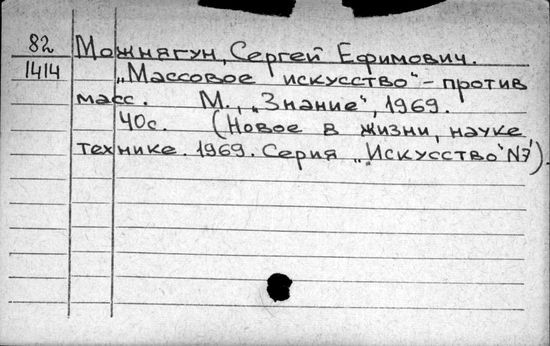 82 Можнягун, Сергей Ефимович.
1414 „Массовое искусство“ - против
масс. М., „Знание“, 1969.
40с. (Новое в жизни, науке
технике. 1969. Серия „Искусство“ N7).